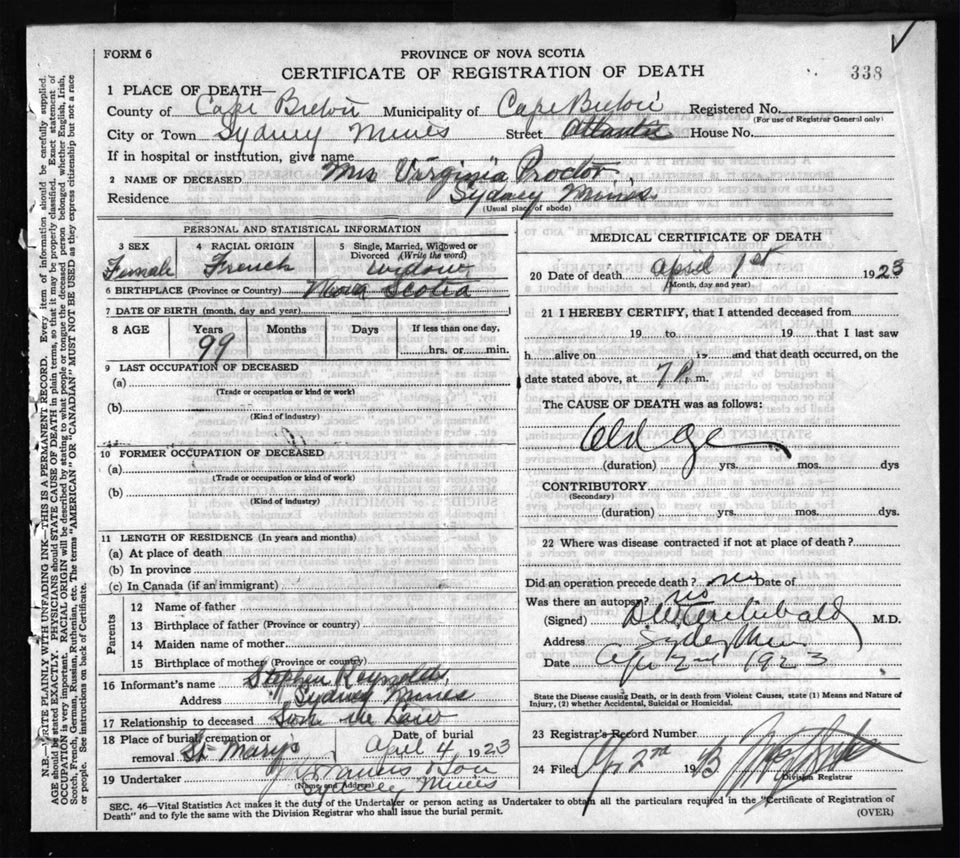 FORM 6
PROVINCE OF NOVA SCOTIA
CERTIFICATE OF REGISTRATION OF DEATH
338
1 PLACE OF DEATH—
County of Cape Breton Municipality of Cape Breton Registered No.
(For use of Registrar General only)
City or Town Sydney Mines Street Atlantic House No.
If in hospital or institution, give name
2 NAME OF DECEASED Mrs Virginia Proctor
Residence Sydney Mines
(Usual place of abode)
PERSONAL AND STATISTICAL INFORMATION
3 SEX 4 RACIAL ORIGIN 5 Single, Married, Widowed or Divorced (Write the word)
Female French Widow
6 BIRTHPLACE (Province or Country) Nova Scotia
7 DATE OF BIRTH (month, day and year)
8 AGE Years Months Days If less than one day,
99 hrs. or min.
9 LAST OCCUPATION OF DECEASED
(a)
(Trade or occupation or kind of work)
(b)
(Kind of industry)
10 FORMER OCCUPATION OF DECEASED
(a)
(Trade or occupation or kind of work)
(b)
(Kind of industry)
11 LENGTH OF RESIDENCE (In years and months)
(a) At place of death
(b) In province
(c) In Canada (if an immigrant)
Parents
12 Name of father
13 Birthplace of father (Province or country)
14 Maiden name of mother
15 Birthplace of mother (Province or country)
16 Informant's name Stephen Reynolds
Address Sydney Mines
17 Relationship to deceased Son in Law
18 Place of burial, cremation or removal St Mary's Date of burial April 4 1923
19 Undertaker & Son
(Name and Address)
Sydney Mines
MEDICAL CERTIFICATE OF DEATH
20 Date of death April 1st 1923
(Month, day and year)
21 I HEREBY CERTIFY, that I attended deceased from
19 to 19 that I last saw
h alive on 19 and that death occurred, on the
date stated above, at 7 P. m.
The CAUSE OF DEATH was as follows:
Old age
(duration) yrs. mos. dys
CONTRIBUTORY
(Secondary)
(duration) yrs. mos. dys.
22 Where was disease contracted if not at place of death?
Did an operation precede death? no Date of
Was there an autopsy? no
(Signed) Archibald M.D.
Address Sydney Mines
Date Apr 2nd 1923
State the Disease causing Death, or in death from Violent Causes, state (1) Means and Nature of Injury, (2) whether Accidental, Suicidal or Homicidal.
23 Registrar's Record Number
24 Filed Apr 2nd 1923
Division Registrar
SEC. 46—Vital Statistics Act makes it the duty of the Undertaker or person acting as Undertaker to obtain all the particulars required in the "Certificate of Registration of
Death" and to fyle the same with the Division Registrar who shall issue the burial permit.
(OVER)
N.B.—WRITE PLAINLY WITH UNFADING INK—THIS IS A PERMANENT RECORD. Every item of information should be carefully supplied.
AGE should be stated EXACTLY. PHYSICIANS should STATE CAUSE OF DEATH in plain terms, so that it may be properly classified. Exact statement of
OCCUPATION is very important. RACIAL ORIGIN will be described by stating to what people or tongue the deceased person belonged whether English, Irish,
Scotch, French, German, Russian, Ruthenian, etc. The terms "AMERICAN" OR "CANADIAN" MUST NOT BE USED as they express citizenship but not a race
or people. See instructions on back of Certificate.